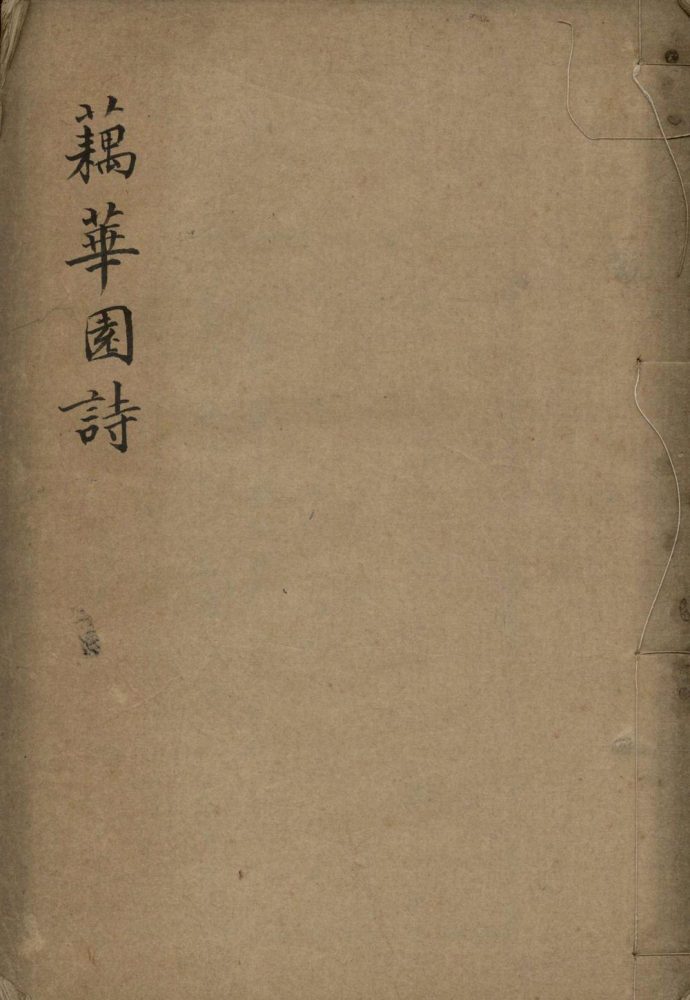 藕華園詩